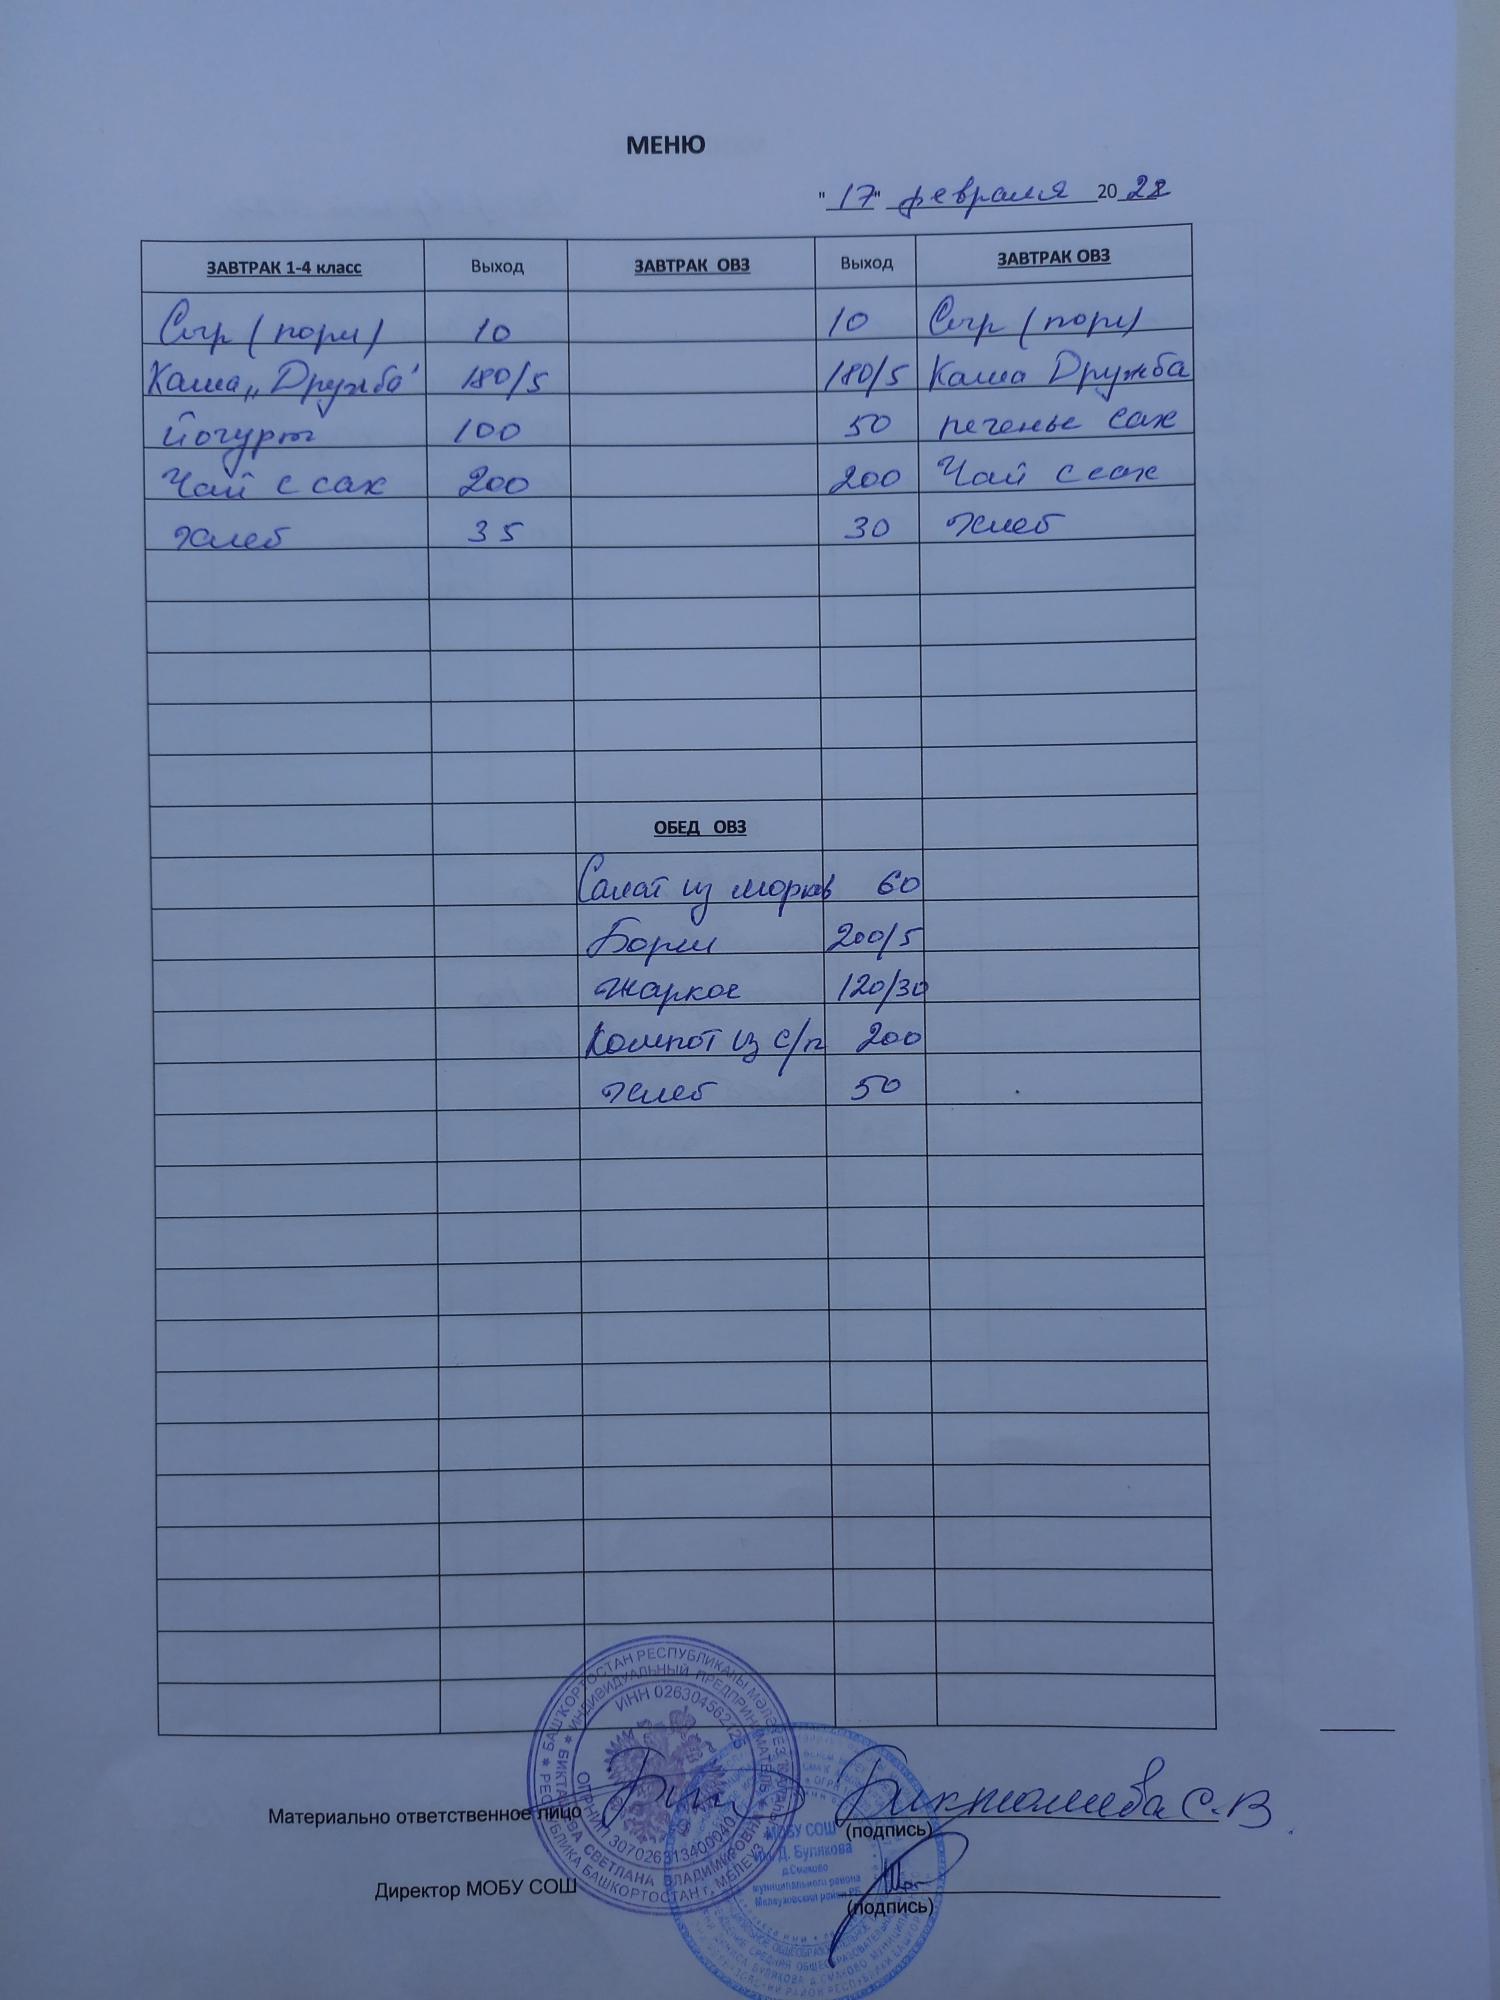 МЕНЮ
"17" февраля 2022
ЗАВТРАК 1-4 класс Выход ЗАВТРАК ОВЗ Выход ЗАВТРАК ОВЗ
Сыр (порц) 10 10 Сыр (порц)
Каша „Дружба" 180/5 180/5 Каша Дружба
йогурт 100 50 печенье сах
Чай с сах 200 200 Чай с сах
хлеб 35 30 хлеб
ОБЕД ОВЗ
Салат из морков 60
Борщ 200/5
жаркое 120/30
Компот из с/п 200
хлеб 50
БАШҠОРТОСТАН РЕСПУБЛИКАҺЫ
ИНДИВИДУАЛЬНЫЙ ПРЕДПРИНИМАТЕЛЬ
СВЕТЛАНА ВЛАДИМИРОВНА
РЕСПУБЛИКА БАШКОРТОСТАН г. МЕЛЕУЗ
Материально ответственное лицо Бикташева С.В
(подпись)
МОБУ СОШ
им. Д. Булякова
д.Смаково
муниципального района
Мелеузовский район РБ
Директор МОБУ СОШ
(подпись)